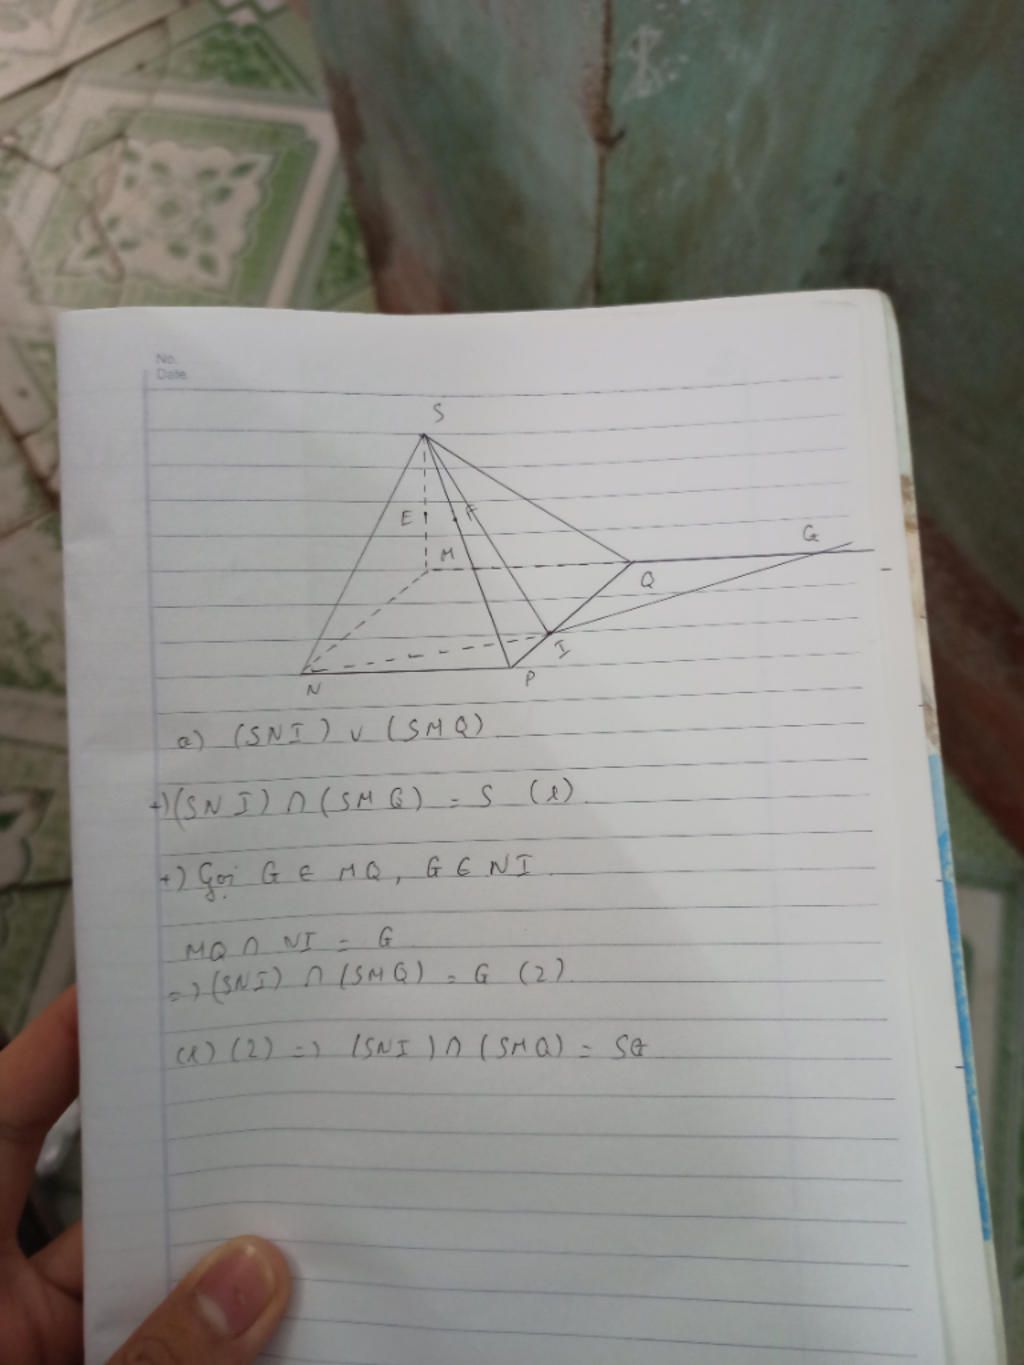 No.
Date
S
E
F
M
G
Q
I
N
P
a) (SNI) v (SMQ)
+) (SNI) ∩ (SMQ) = S (1)
+) Gọi G ∈ MQ, G ∈ NI
MQ ∩ NI = G
=> (SNI) ∩ (SMQ) = G (2)
(1) (2) => (SNI) ∩ (SMQ) = SG